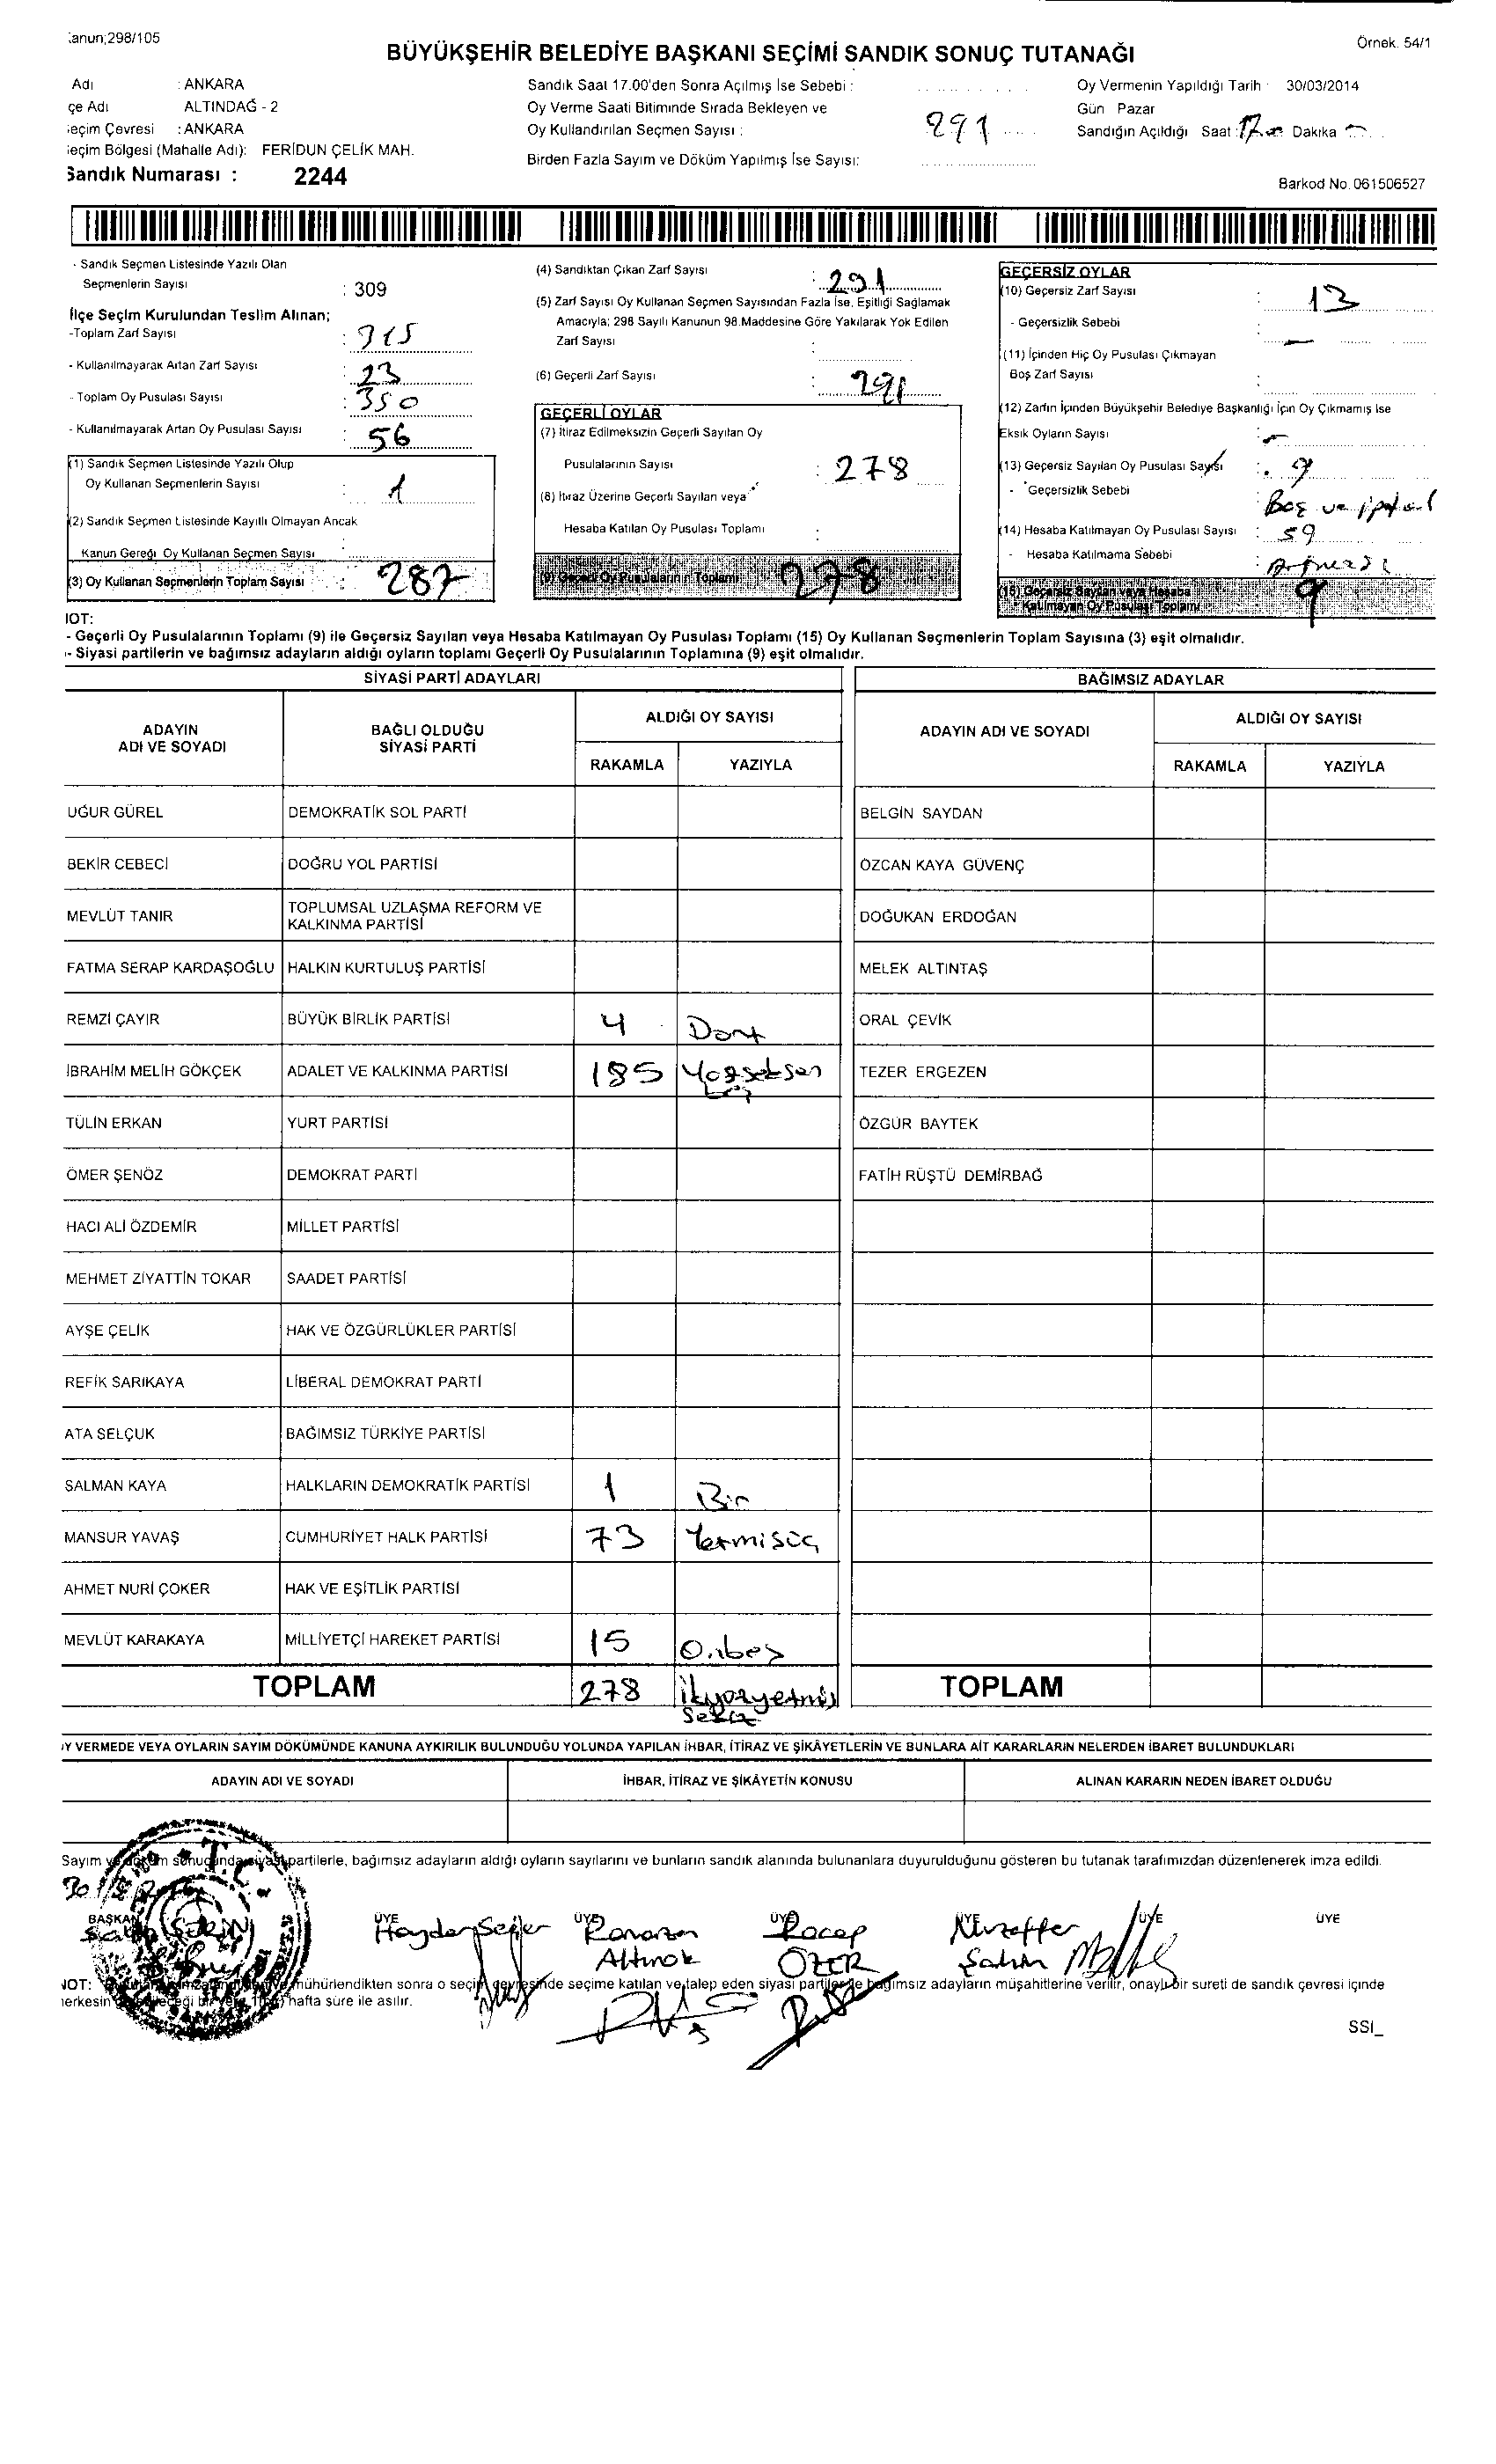 anun;298/105
Örnek. 54/1
BÜYÜKŞEHİR BELEDİYE BAŞKANI SEÇİMİ SANDIK SONUÇ TUTANAĞI
Adı : ANKARA
çe Adı ALTINDAĞ - 2
eçim Çevresi : ANKARA
eçim Bölgesi (Mahalle Adı): FERİDUN ÇELİK MAH.
Sandık Numarası : 2244
Sandık Saat 17.00'den Sonra Açılmış İse Sebebi :
Oy Verme Saati Bitiminde Sırada Bekleyen ve
Oy Kullandırılan Seçmen Sayısı : 291
Birden Fazla Sayım ve Döküm Yapılmış İse Sayısı:
Oy Vermenin Yapıldığı Tarih : 30/03/2014
Gün Pazar
Sandığın Açıldığı Saat : 17 Dakika
Barkod No.061506527
- Sandık Seçmen Listesinde Yazılı Olan
Seçmenlerin Sayısı : 309
İlçe Seçim Kurulundan Teslim Alınan;
-Toplam Zarf Sayısı : 315
- Kullanılmayarak Artan Zarf Sayısı : 23
- Toplam Oy Pusulası Sayısı : 350
- Kullanılmayarak Artan Oy Pusulası Sayısı : 56
(1) Sandık Seçmen Listesinde Yazılı Olup
Oy Kullanan Seçmenlerin Sayısı : 1
(2) Sandık Seçmen Listesinde Kayıtlı Olmayan Ancak
Kanun Gereği Oy Kullanan Seçmen Sayısı :
(3) Oy Kullanan Seçmenlerin Toplam Sayısı : 287
(4) Sandıktan Çıkan Zarf Sayısı : 291
(5) Zarf Sayısı Oy Kullanan Seçmen Sayısından Fazla İse, Eşitliği Sağlamak
Amacıyla; 298 Sayılı Kanunun 98.Maddesine Göre Yakılarak Yok Edilen
Zarf Sayısı :
(6) Geçerli Zarf Sayısı : 291
GEÇERLİ OYLAR
(7) İtiraz Edilmeksizin Geçerli Sayılan Oy
Pusulalarının Sayısı : 278
(8) İtiraz Üzerine Geçerli Sayılan veya
Hesaba Katılan Oy Pusulası Toplamı :
(9) Geçerli Oy Pusulalarının Toplamı 278
GEÇERSİZ OYLAR
(10) Geçersiz Zarf Sayısı : 13
- Geçersizlik Sebebi : —
(11) İçinden Hiç Oy Pusulası Çıkmayan
Boş Zarf Sayısı :
(12) Zarfın İçinden Büyükşehir Belediye Başkanlığı İçin Oy Çıkmamış İse
Eksik Oyların Sayısı :
(13) Geçersiz Sayılan Oy Pusulası Sayısı : 9
- Geçersizlik Sebebi : Boş ve iptal
(14) Hesaba Katılmayan Oy Pusulası Sayısı : 59
- Hesaba Katılmama Sebebi :
(15) Geçersiz Sayılan veya Hesaba
Katılmayan Oy Pusulası Toplamı 9
NOT:
- Geçerli Oy Pusulalarının Toplamı (9) ile Geçersiz Sayılan veya Hesaba Katılmayan Oy Pusulası Toplamı (15) Oy Kullanan Seçmenlerin Toplam Sayısına (3) eşit olmalıdır.
- Siyasi partilerin ve bağımsız adayların aldığı oyların toplamı Geçerli Oy Pusulalarının Toplamına (9) eşit olmalıdır.
SİYASİ PARTİ ADAYLARI BAĞIMSIZ ADAYLAR
ADAYIN ADI VE SOYADI BAĞLI OLDUĞU SİYASİ PARTİ ALDIĞI OY SAYISI ADAYIN ADI VE SOYADI ALDIĞI OY SAYISI
RAKAMLA YAZIYLA RAKAMLA YAZIYLA
UĞUR GÜREL DEMOKRATİK SOL PARTİ BELGİN SAYDAN
BEKİR CEBECİ DOĞRU YOL PARTİSİ ÖZCAN KAYA GÜVENÇ
MEVLÜT TANIR TOPLUMSAL UZLAŞMA REFORM VE KALKINMA PARTİSİ DOĞUKAN ERDOĞAN
FATMA SERAP KARDAŞOĞLU HALKIN KURTULUŞ PARTİSİ MELEK ALTINTAŞ
REMZİ ÇAYIR BÜYÜK BİRLİK PARTİSİ 4 Dört ORAL ÇEVİK
İBRAHİM MELİH GÖKÇEK ADALET VE KALKINMA PARTİSİ 185 Yüzseksen beş TEZER ERGEZEN
TÜLİN ERKAN YURT PARTİSİ ÖZGÜR BAYTEK
ÖMER ŞENÖZ DEMOKRAT PARTİ FATİH RÜŞTÜ DEMİRBAĞ
HACI ALİ ÖZDEMİR MİLLET PARTİSİ
MEHMET ZİYATTİN TOKAR SAADET PARTİSİ
AYŞE ÇELİK HAK VE ÖZGÜRLÜKLER PARTİSİ
REFİK SARIKAYA LİBERAL DEMOKRAT PARTİ
ATA SELÇUK BAĞIMSIZ TÜRKİYE PARTİSİ
SALMAN KAYA HALKLARIN DEMOKRATİK PARTİSİ 1 Bir
MANSUR YAVAŞ CUMHURİYET HALK PARTİSİ 73 Yetmisüç
AHMET NURİ ÇOKER HAK VE EŞİTLİK PARTİSİ
MEVLÜT KARAKAYA MİLLİYETÇİ HAREKET PARTİSİ 15 Onbeş
TOPLAM 278 İkiyüzyetmiş sekiz TOPLAM
Y VERMEDE VEYA OYLARIN SAYIM DÖKÜMÜNDE KANUNA AYKIRILIK BULUNDUĞU YOLUNDA YAPILAN İHBAR, İTİRAZ VE ŞİKÂYETLERİN VE BUNLARA AİT KARARLARIN NELERDEN İBARET BULUNDUKLARI
ADAYIN ADI VE SOYADI İHBAR, İTİRAZ VE ŞİKÂYETİN KONUSU ALINAN KARARIN NEDEN İBARET OLDUĞU
Sayım ve döküm sonucunda siyasi partilerle, bağımsız adayların aldığı oyların sayılarını ve bunların sandık alanında bulunanlara duyurulduğunu gösteren bu tutanak tarafımızdan düzenlenerek imza edildi.
BAŞKAN ÜYE ÜYE ÜYE ÜYE ÜYE ÜYE
Haydar Seğer Ramazan Altınok Recep ÖZER Muzaffer Şahin
NOT: mühürlendikten sonra o seçim çevresinde seçime katılan ve talep eden siyasi partiler ile bağımsız adayların müşahitlerine verilir, onaylı bir sureti de sandık çevresi içinde
herkesin hafta süre ile asılır.
SSI_